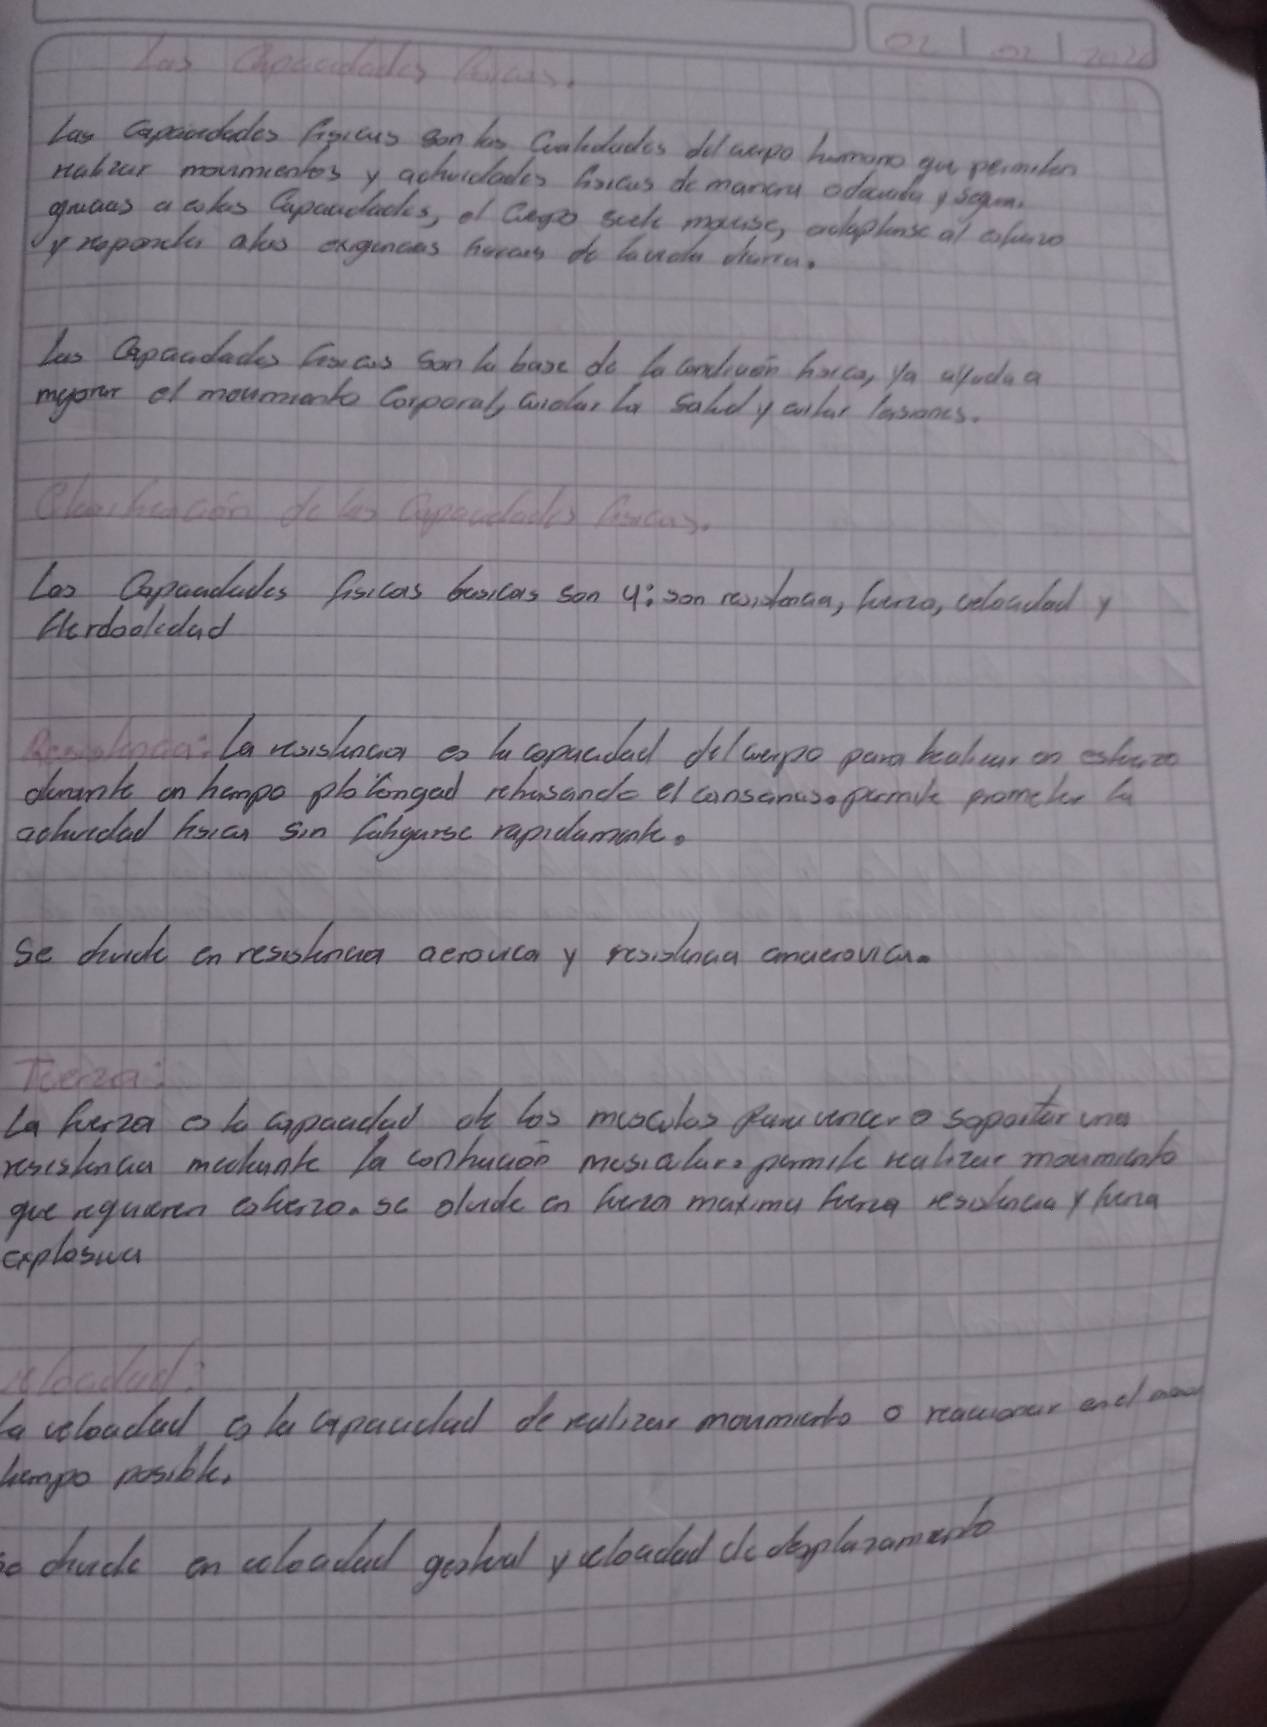 02 | 02 | 2026
Las Capacidades físicas.
Las Capacidades físicas son las Cualidades del cuerpo humano que permiten
realizar movimientos y actividades físicas de manera adecuada y segura.
gracias a estas Capacidades, el Cuerpo suele moverse, adaptarse al esfuerzo
y responder a las exigencias físicas de la vida diaria.
Las Capacidades físicas son la base de la condición física, ya ayuda a
mejorar el movimiento Corporal, cuidar la Salud y evitar lesiones.
Clasificación de las Capacidades físicas.
Las Capacidades físicas basicas son 4: son resistencia, fuerza, velocidad y
flerdoolidad
Resistencia: La resistencia es la capacidad del cuerpo para realizar on esfuerzo
durante on tiempo plolongad retrasando el cansancio. permite prometer la
actividad física sin fatigarse rapidamente.
Se divide en resistencia aerovica y resistencia anaerovica.
Fuerza:
La fuerza es la capacidad de los musculos para vencer o soportar una
resistencia mediante la contración muscular. permite realizar movimiento
que requieren esfuerzo. se divide en fuerza maxima fuerza resistencia y fuerza
explosiva
velocidad:
La velocidad es la capacidad de realizar movimiento o reaccionar en el
tiempo posible.
se divide en velocidad gestual y velocidad de desplazamiento